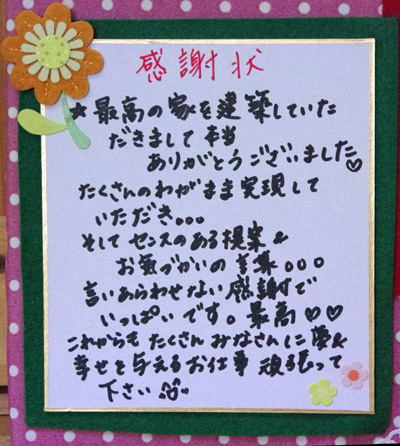 感謝状
★最高の家を建築していた
だきまして本当
ありがとうございました♡
たくさんのわがまま実現して
いただき。。。
そしてセンスのある提案&
お気づかいの言葉。。。
言いあらわせない感謝で
いっぱいです。最高♡♡
これからもたくさんみなさんに夢&
幸せを与えるお仕事頑張って
下さい